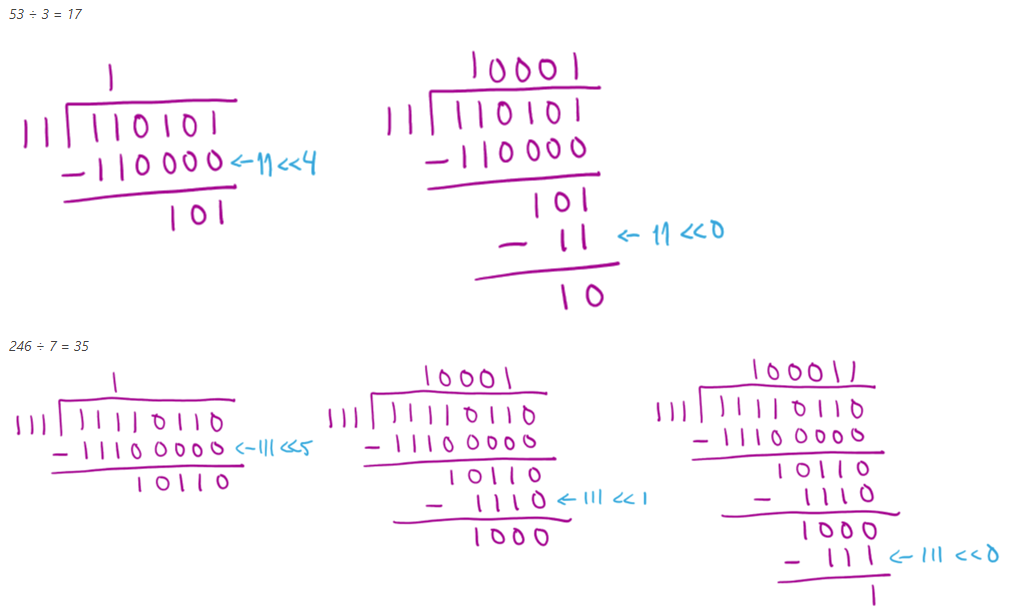 53 ÷ 3 = 17
1
11 110101
-110000 <-11<<4
101
10001
11 110101
-110000
101
- 11 <- 11<<0
10
246 ÷ 7 = 35
1
111 11110110
-11100000 <-111<<5
10110
10001
111 11110110
-11100000
10110
- 1110 <-111<<1
1000
100011
111 11110110
-11100000
10110
- 1110
1000
- 111 <-111<<0
1